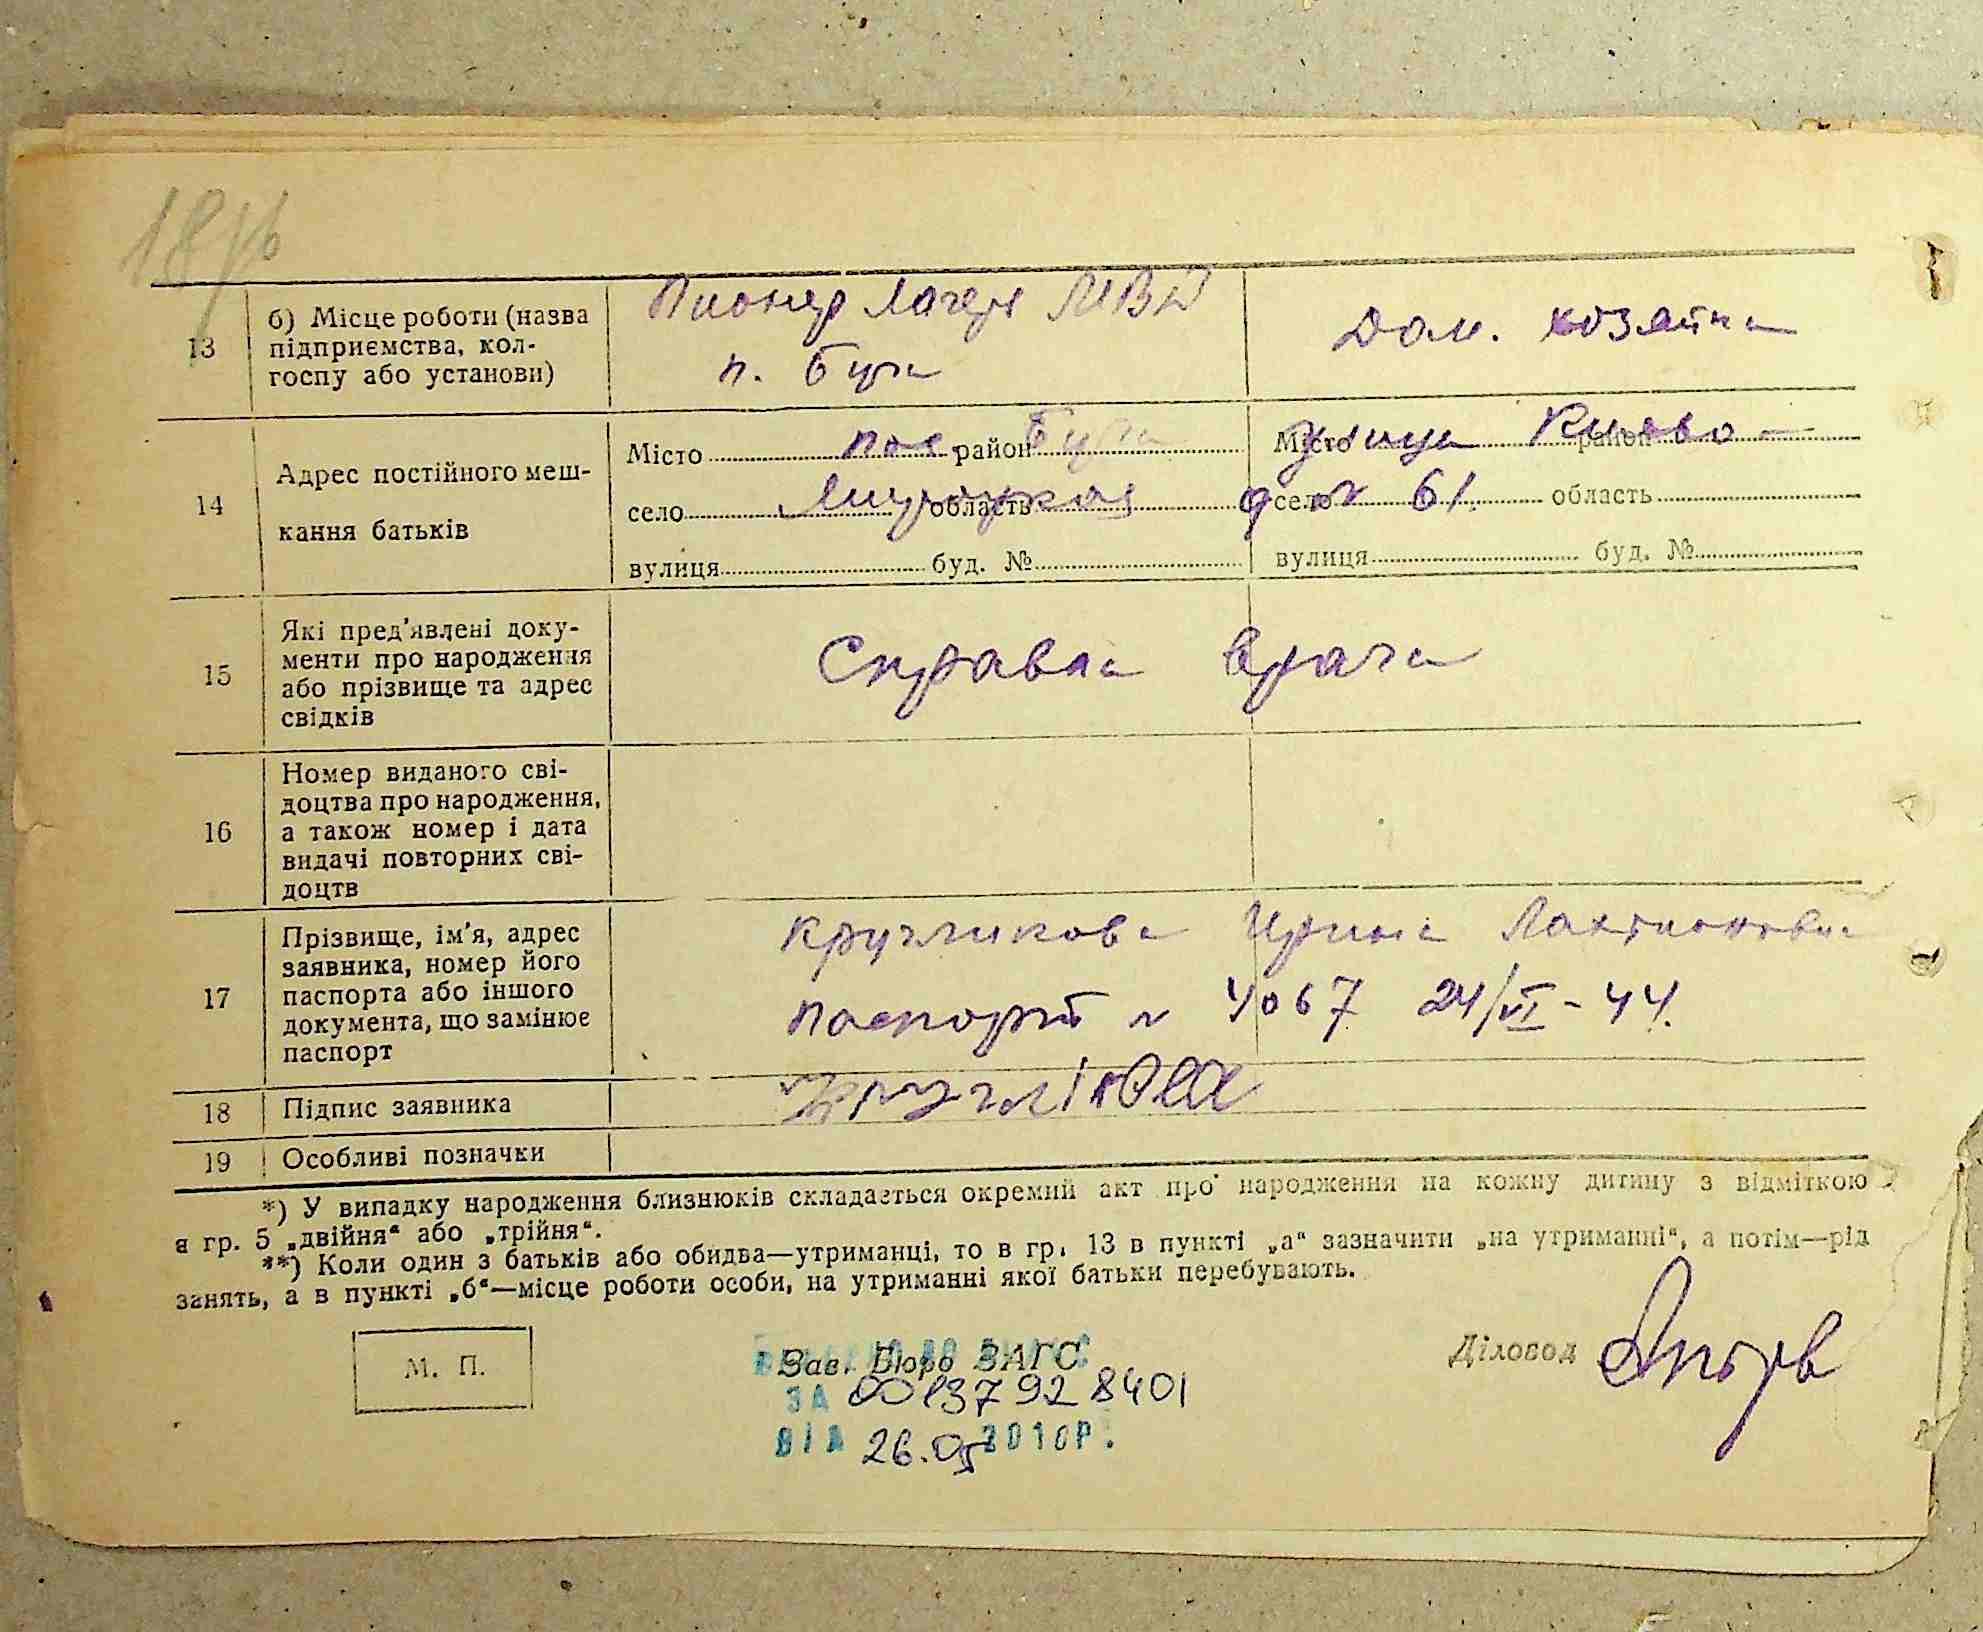 13
б) Місце роботи (назва
підприємства, кол-
госпу або установи)
Пионер лагерь МВД
п. Буча
Дом. хозяйка
14
Адрес постійного меш-
кання батьків
Місто пос. район Буча
село область
вулиця буд. №
Місто улица район Киево-
село 61. область
вулиця буд. №
Мироцкая
15
Які пред'явлені доку-
менти про народження
або прізвище та адрес
свідків
Справка врача
16
Номер виданого сві-
доцтва про народження,
а також номер і дата
видачі повторних сві-
доцтв
17
Прізвище, ім'я, адрес
заявника, номер його
паспорта або іншого
документа, що замінює
паспорт
Кругликова Ирина Лактионовна
паспорт № 4067 24/VI-44.
18
Підпис заявника
19
Особливі позначки
*) У випадку народження близнюків складається окремий акт про народження на кожну дитину з відміткою
в гр. 5 „двійня" або „трійня".
**) Коли один з батьків або обидва—утриманці, то в гр. 13 в пункті „а" зазначити „на утриманні", а потім—рід
занять, а в пункті „б"—місце роботи особи, на утриманні якої батьки перебувають.
М. П.
Зав. Бюро ЗАГС
Діловод
ЗА 00137928401
ВІД 26.05 2010Р.